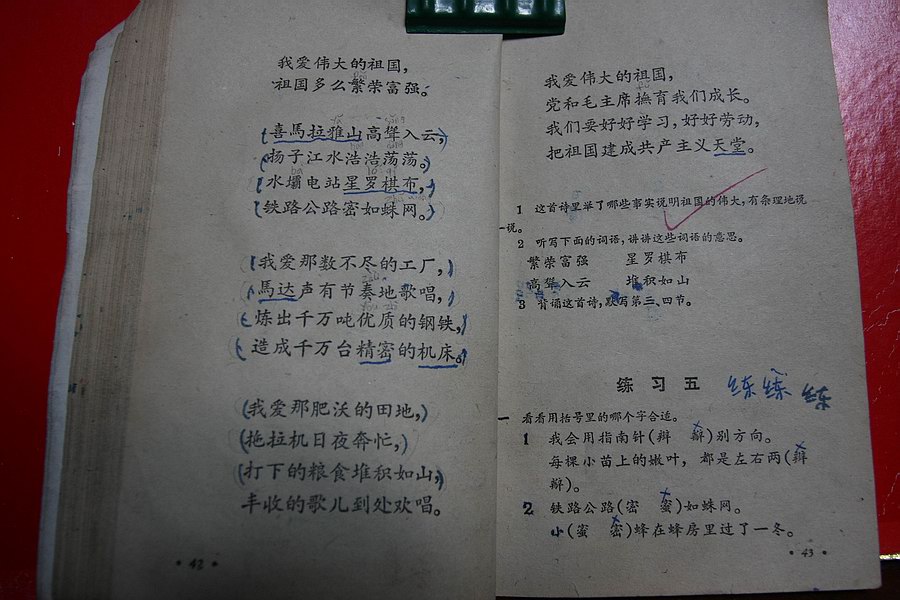 我爱伟大的祖国,
祖国多么繁荣富强。
喜馬拉雅山高耸入云,
扬子江水浩浩荡荡。
水壩电站星罗棋布,
铁路公路密如蛛网。
我爱那数不尽的工厂,
馬达声有节奏地歌唱,
炼出千万吨优质的钢铁,
造成千万台精密的机床。
我爱那肥沃的田地,
拖拉机日夜奔忙,
打下的粮食堆积如山,
丰收的歌儿到处欢唱。
• 42 •
我爱伟大的祖国,
党和毛主席撫育我们成长。
我们要好好学习,好好劳动,
把祖国建成共产主义天堂。
1 这首诗里举了哪些事实说明祖国的伟大,有条理地说
一说。
2 听写下面的词语,讲讲这些词语的意思。
繁荣富强 星罗棋布
高耸入云 堆积如山
3 背诵这首诗,默写第三、四节。
练习五 练 练 练
一 看看用括号里的哪个字合适。
1 我会用指南针(辨 辮)别方向。
每棵小苗上的嫩叶, 都是左右两(辨
瓣)。
2 铁路公路(密 蜜)如蛛网。
小(蜜 密)蜂在蜂房里过了一冬。
• 43 •